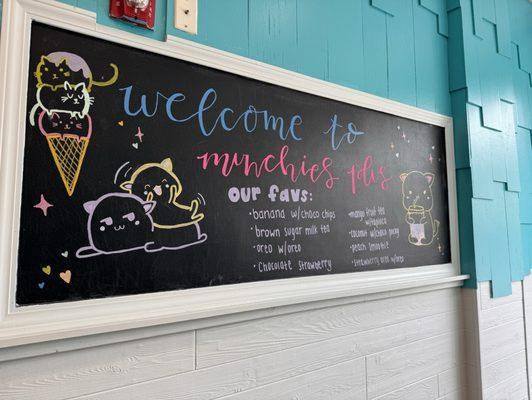 welcome to
munchies plis
our favs:
• banana w/choco chips
• brown sugar milk tea
• oreo w/oreo
• Chocolate strawberry
• mango fruit tea
w/tapioca
• coconut w/choco pocky
• peach smoothie
• strawberry oreo w/oreo